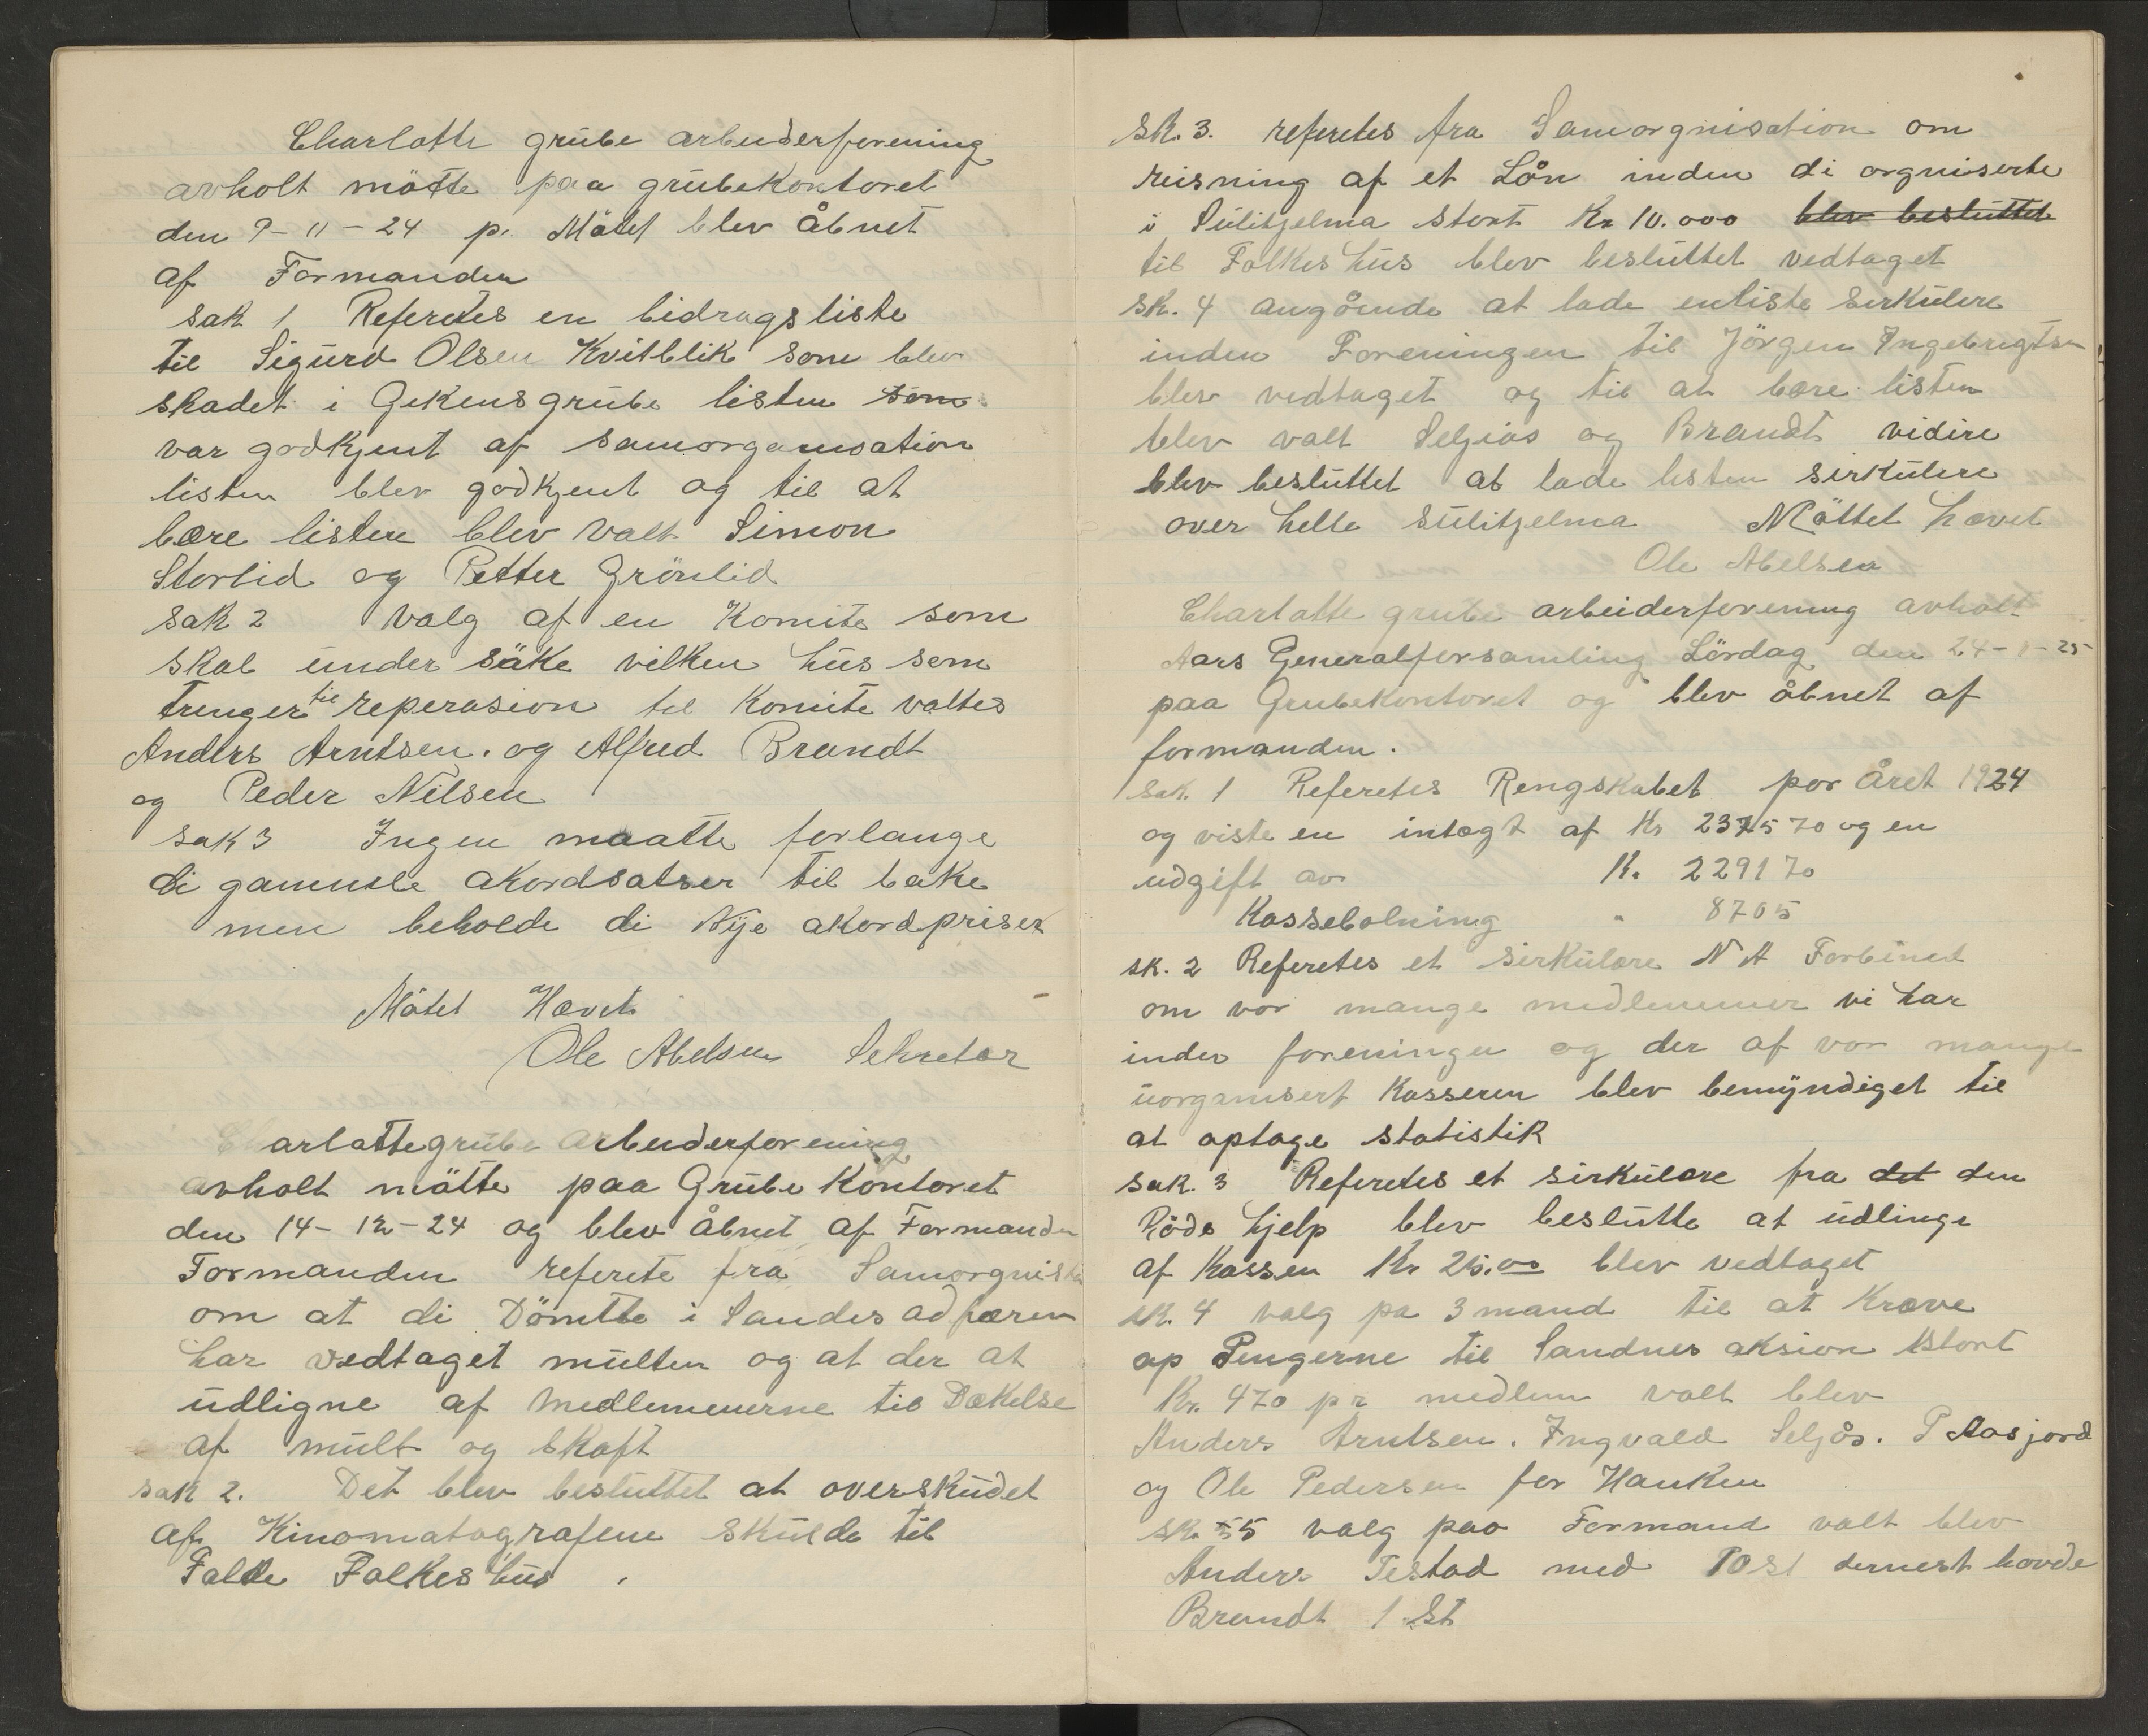 Charlotte grübe arbeiderforening
avholt mötte paa grübekontoret
den 9-11-24 p. Mötet blev åbnet
af Formanden
sak 1 Referetes en bidragsliste
til Sigürd Olsen Kvitblik som blev
skadet i Gikensgrübe listen som
var godkjent af samorganisation
listen blev godkjent og til at
bære listen blev valt Simon
Storlid og Petter Grönlid
sak 2 valg af en Komite som
skal ünder säke vilken hüs som
trenger til reperasion til Komite valtes
Anders Arntsen. og Alfred Brandt
og Peder Nilsen
sak 3 Ingen maatte forlange
di gammle akordsatser til bake
men beholde di Nÿe akordpriser
Mötet Hævet
Ole Abelsen Sekretær
Charlottegrübe Arbeiderforening
avholt mötte paa Grübe Kontoret
den 14-12-24 og blev åbnet af Formanden
Formanden referete fra Samorgnist
om at di Dömtte i Sandes adfæren
har vedtaget mülten og at der at
üdligne af Medlemmerne til Dækelse
af mült og skaft
sak 2. Det blev beslüttet at overskûdet
af Kinomatografene skülde til
Falde Folkes hüs.
Sk. 3. referetes fra Samorgnisation om
reisning af et Lån inden di orgniserte
i Sülitjelma stort Kr 10.000 blev beslüttet
til Folkes hüs blev beslüttet vedtaget
sk. 4 angående at lade enliste Sirkülere
inden Foreningen til Jörgen Ingebrigtsen
blev vedtaget og til at bære listen
blev valt Seljÿås og Brandt vidire
blev beslüttet at lade listen sirkülere
over helle Sülitjelma Möttet hævet
Ole Abelsen
Charlotte grube arbeiderforening avholt
Aars Generalforsamling Lördag den 24-1-25
paa Grubekontoret og blev åbnet af
formanden.
Sak. 1 Referetes Rengskabet por Året 1924
og viste en intægt af Kr 2375 70 og en
udgift av K. 2291 70
Kassebolning " 8705
sk. 2 Referetes et sirkülære N A Forbund
om vor mange medlemmer vi har
inden foreningen og der af vor mange
üorganisert Kasseren blev bemÿndiget til
at optage statistik
sak. 3 Referetes et sirkülære fra det den
Röde hjelp blev beslütte at üdlinge
af Kassen Kr 25.00 blev vedtaget
sk. 4 valg pa 3 mand til at Kræve
op Pengerne til Sandnes aksion stort
Kr. 470 pr medlem valt blev
Anders Arntsen. Ingvald Seljås. P Aasjord
og Ole Pedersen for Hanken
sk. 5 valg paa Formand valt blev
Anders Testad med 10 st dernest havde
Brandt 1 St